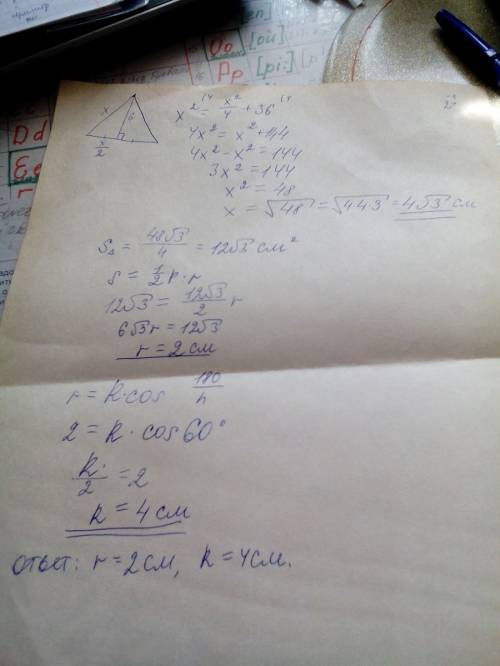 [ən]
Oo [ou]
Pp [pi:]
Dd
Ee
x
6
x/2
x² = x²/4 + 36
4x² = x² + 144
4x² - x² = 144
3x² = 144
x² = 48
x = √48 = √4·4·3 = 4√3 см
S△ = 48√3/4 = 12√3 см²
S = 1/2 P · r
12√3 = 12√3/2 r
6√3 r = 12√3
r = 2 см
r = R · cos 180/n
2 = R · cos 60°
R/2 = 2
R = 4 см
ответ: r = 2 см, R = 4 см.